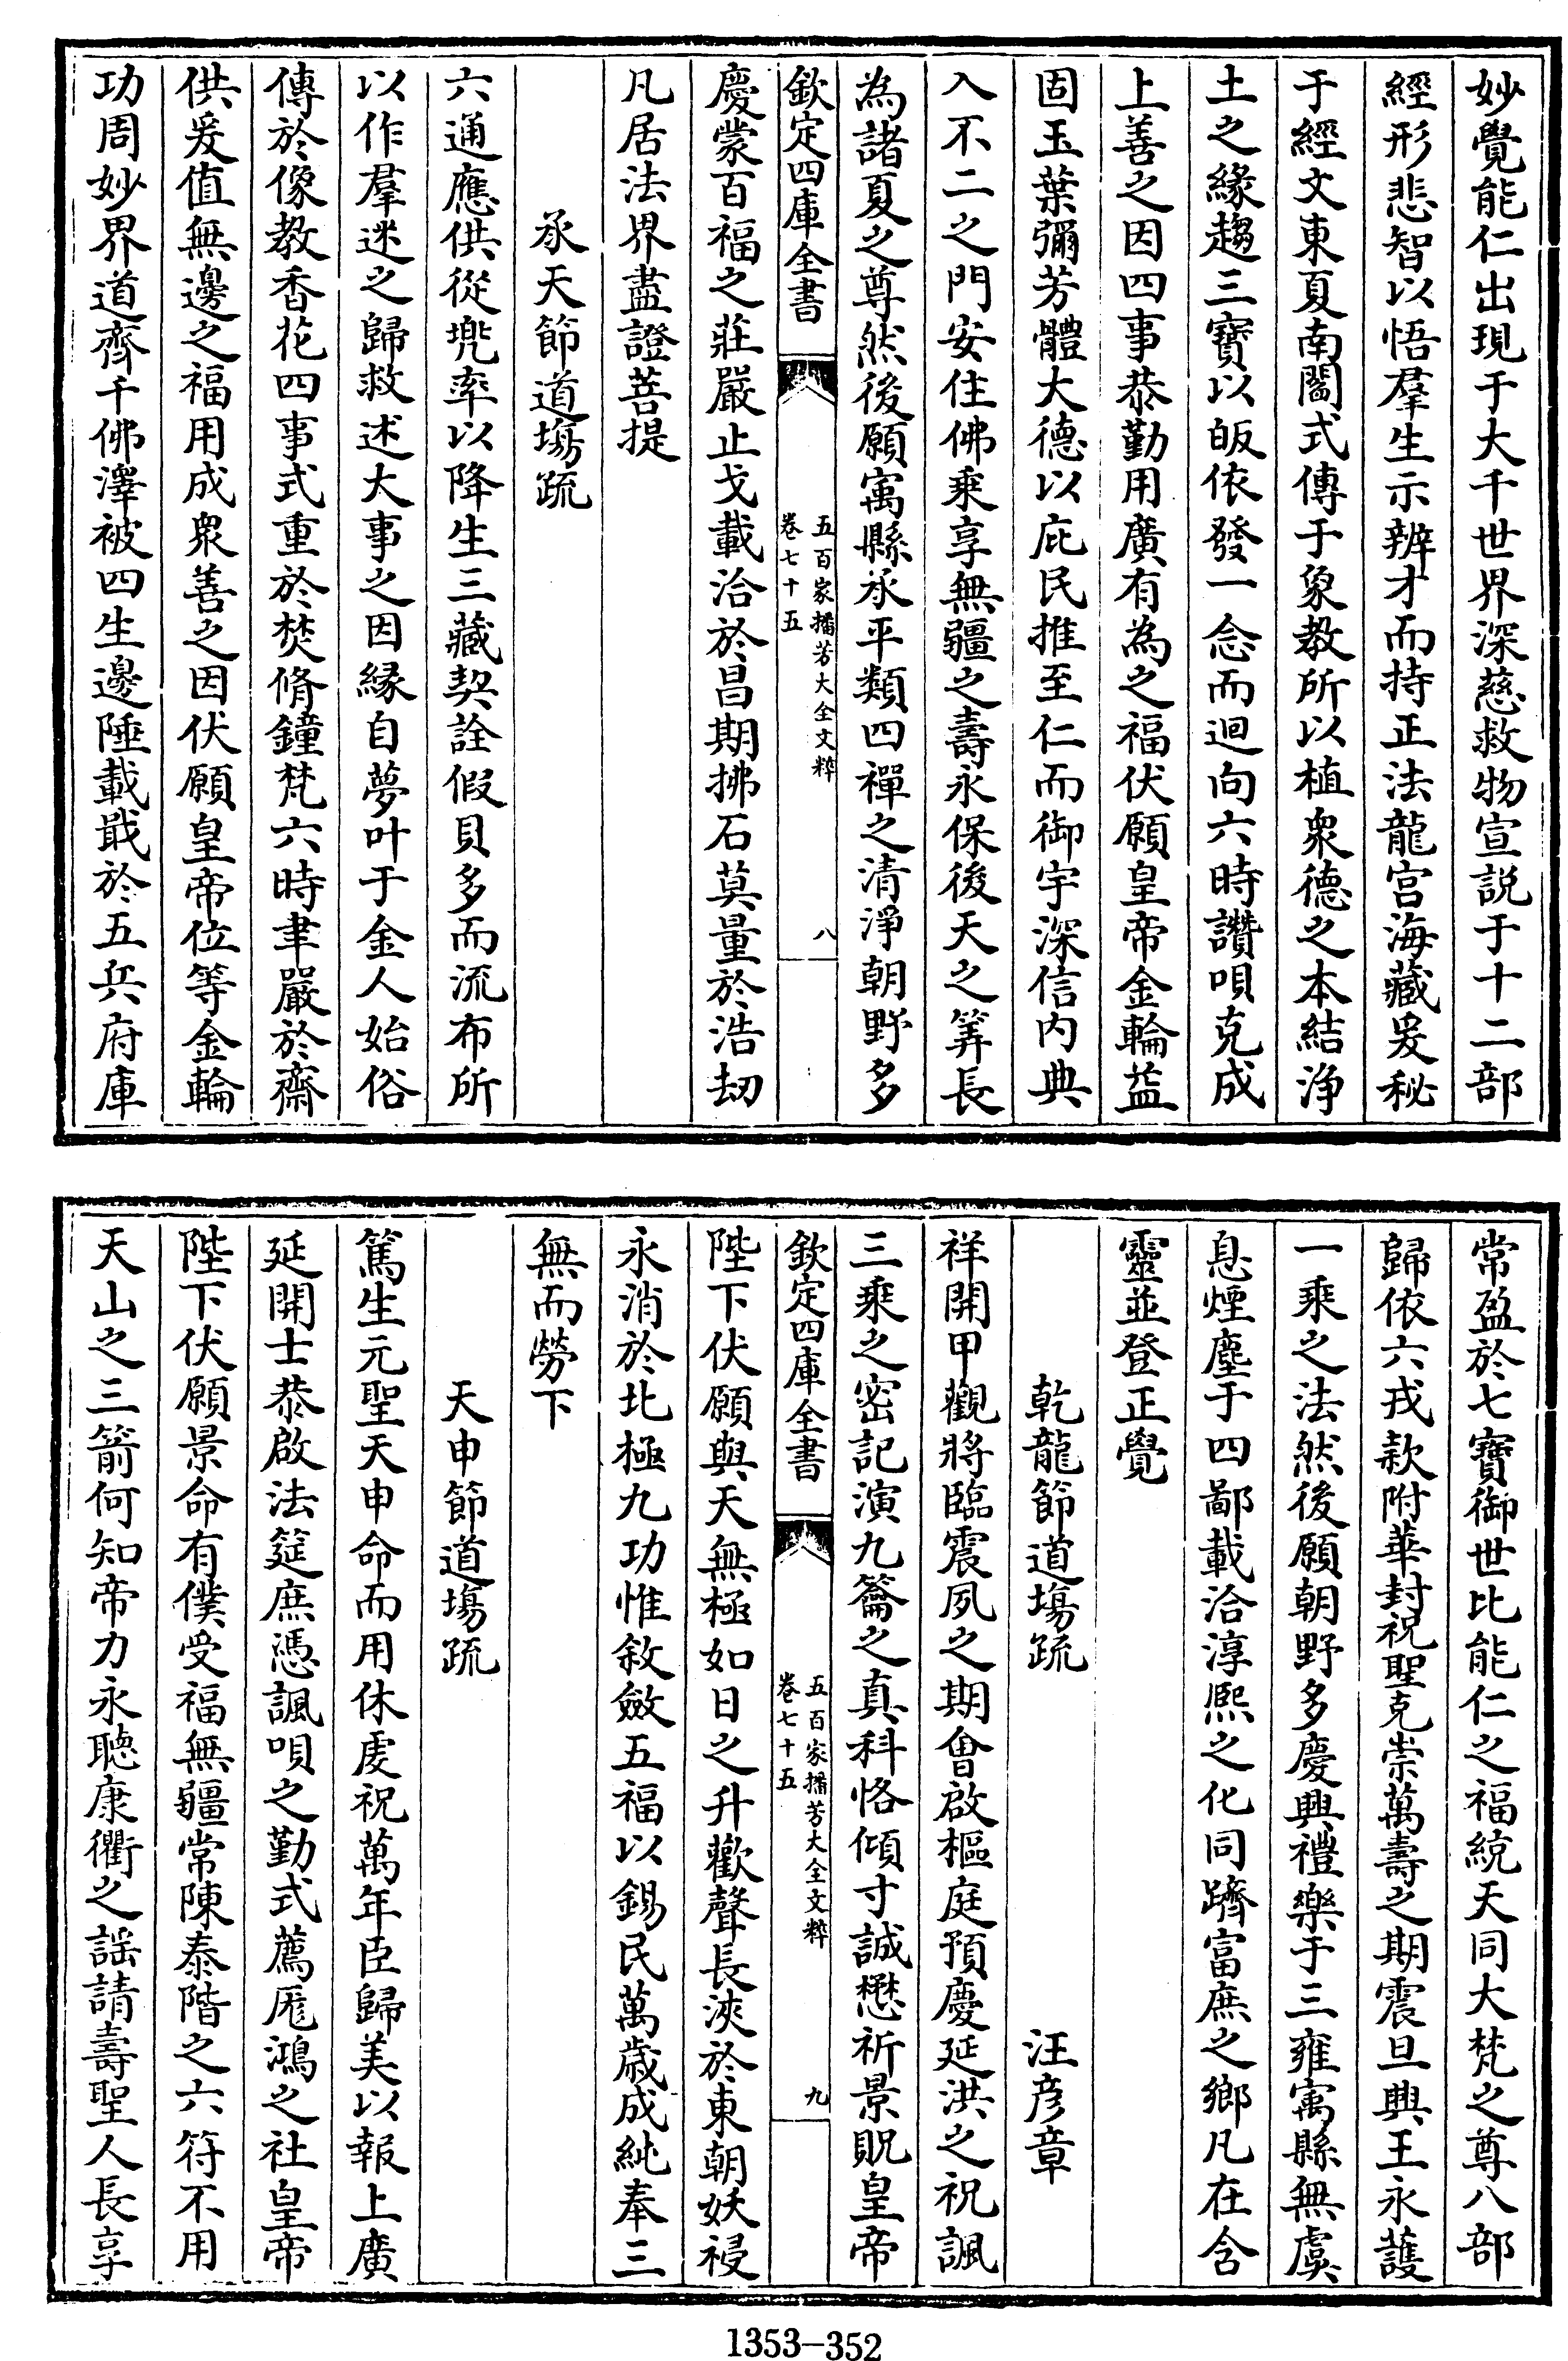 妙覺能仁出現于大千世界深慈救物宣説于十二部
經形悲智以悟羣生示辨才而持正法龍宫海藏爰秘
于經文東夏南閻式傳于象教所以植衆德之本結浄
土之緣趨三寳以皈依發一念而迴向六時讚唄克成
上善之因四事恭勤用廣有為之福伏願皇帝金輪益
固玉葉彌芳體大德以庇民推至仁而御宇深信内典
入不二之門安住佛乘享無疆之壽永保後天之筭長
為諸夏之尊然後願寓縣永平類四禪之清淨朝野多
欽定四庫全書
五百家播芳大全文粹
卷七十五
八
慶蒙百福之莊嚴止戈載洽於昌期拂石莫量於浩刧
凡居法界盡證菩提
承天節道塲疏
六通應供從兠率以降生三藏契詮假貝多而流布所
以作羣迷之歸救述大事之因縁自夢叶于金人始俗
傳於像教香花四事式重於焚脩鐘梵六時聿嚴於齋
供爰值無邊之福用成衆善之因伏願皇帝位等金輪
功周妙界道齊千佛澤被四生邊陲載戢於五兵府庫
常盈於七寶御世比能仁之福統天同大梵之尊八部
歸依六戎款附華封祝聖克崇萬壽之期震旦興王永護
一乘之法然後願朝野多慶興禮樂于三雍寓縣無虞
息煙塵于四鄙載洽淳熈之化同躋富庶之鄉凡在含
靈並登正覺
乾龍節道塲疏
汪彦章
祥開甲觀將臨震夙之期會啟樞庭預慶延洪之祝諷
三乘之密記演九籥之真科恪傾寸誠懋祈景貺皇帝
欽定四庫全書
五百家播芳大全文粹
卷七十五
九
陛下伏願與天無極如日之升歡聲長浹於東朝妖祲
永消於北極九功惟敘斂五福以錫民萬歳成純奉三
無而勞下
天申節道塲疏
篤生元聖天申命而用休虔祝萬年臣歸美以報上廣
延開士恭啟法筵庶憑諷唄之勤式薦厖鴻之社皇帝
陛下伏願景命有僕受福無疆常陳泰階之六符不用
天山之三箭何知帝力永聽康衢之謡請壽聖人長享
1353—352